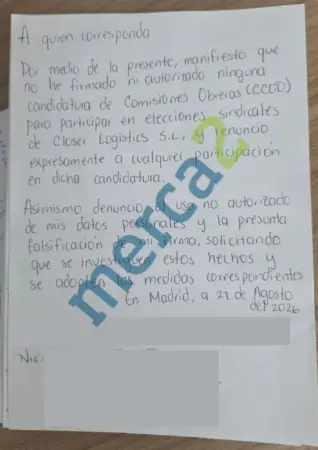 A quien corresponda
Por medio de la presente, manifiesto que
no he firmado ni autorizado ninguna
candidatura de Comisiones Obreras (CCOO)
para participar en elecciones sindicales
de Closer Logistics S.L, y renuncio
expresamente a cualquier participación
en dicha candidatura.
Asimismo denuncio el uso no autorizado
de mis datos personales y la presunta
falsificación de mi firma, solicitando
que se investiguen estos hechos y
se adopten las medidas correspondientes
En Madrid, a 21 de Agosto
del 2026
merca2